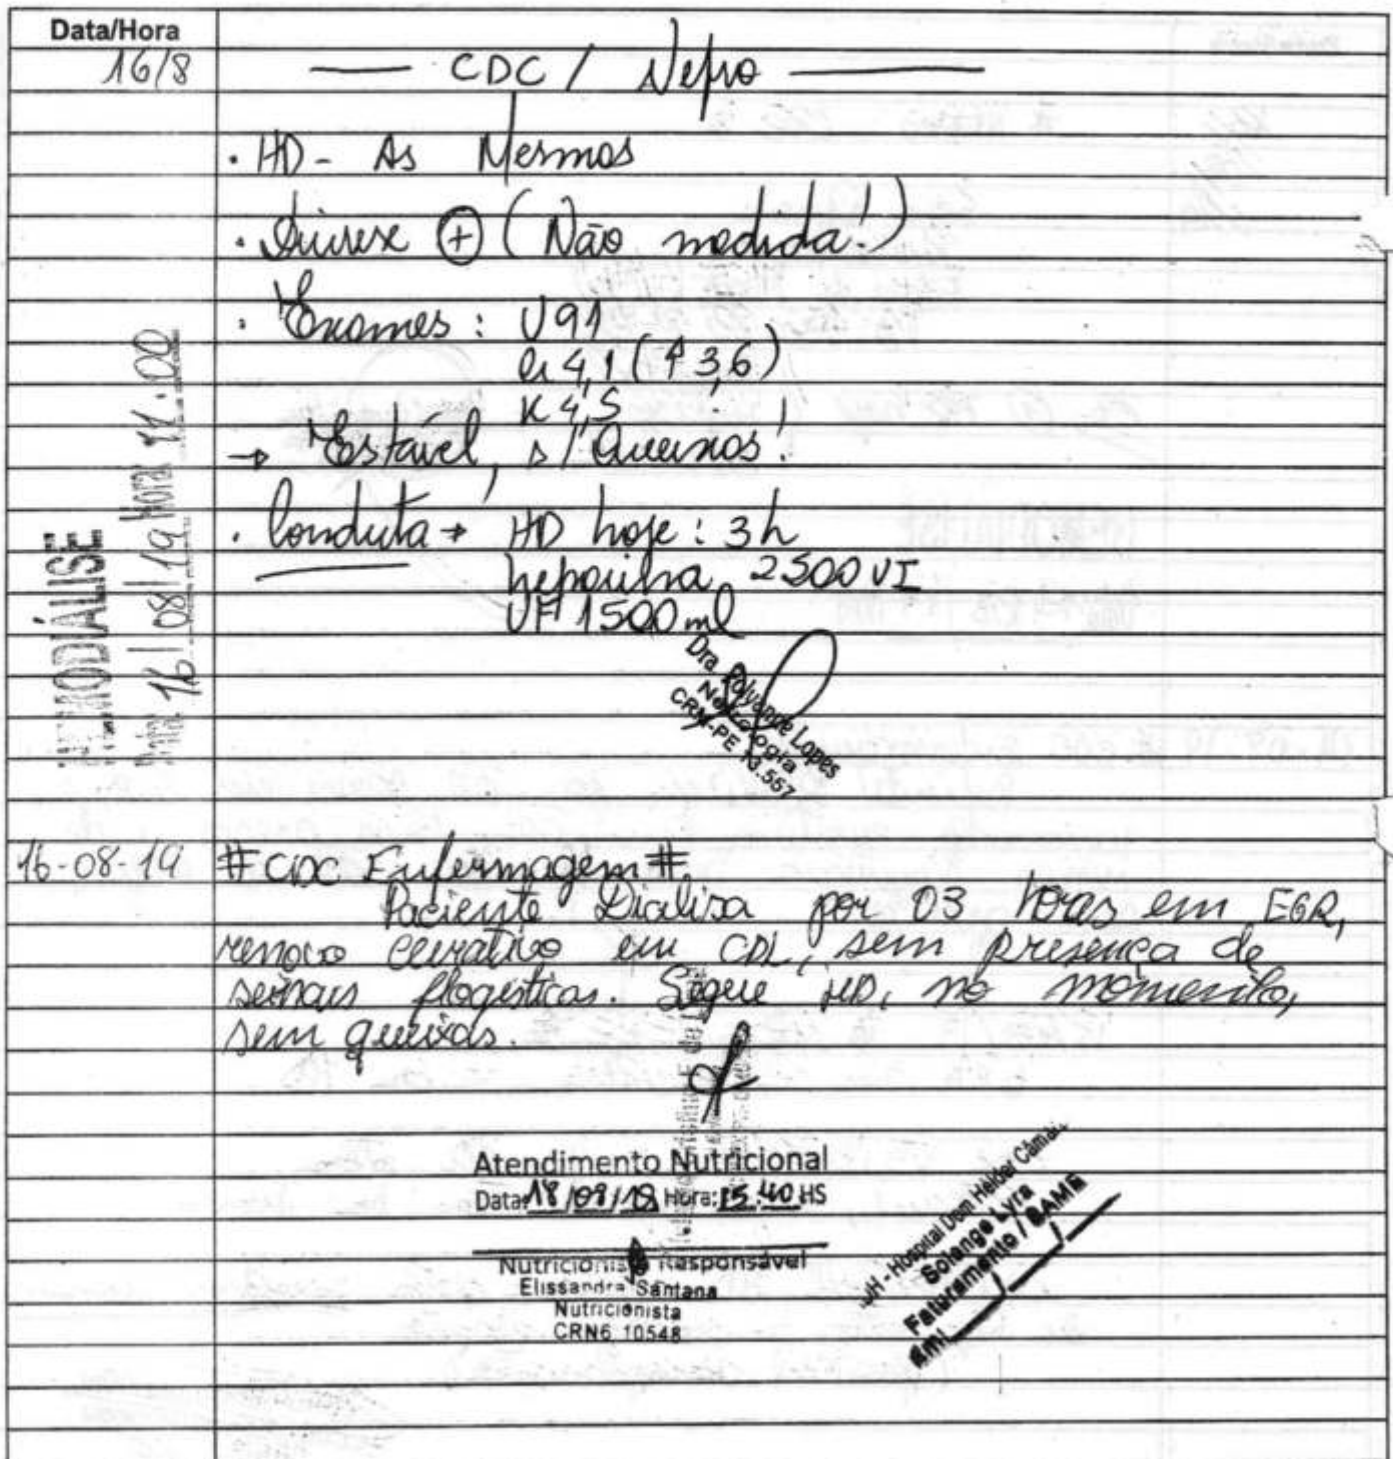 Data/Hora
16/8
CDC / Nefro
. HD - As Mesmas
. Diurese (+) (Não medida!)
. Exames: U 91
Cr 4,1 (↑ 3,6)
K 4,5
→ Estável, s/ Queixas!
. Conduta → HD hoje: 3h
heparina 2500 UI
UF 1500 ml
HEMODIÁLISE
Data: 16/08/19 Hora: 11:00
Dra. Polyanne Lopes
Nefrologia
CRM-PE
16-08-19
# CDC Enfermagem #
Paciente Dialisa por 03 horas em EGR,
renovo curativo em CDL, sem presença de
seinais flogísticos. Segue HD, no momento,
sem queixas.
Atendimento Nutricional
Data: 18/08/19 Hora: 15:40 HS
Nutricionista Responsável
Elissandra Santana
Nutricionista
CRN6 10548
Hospital Dom Helder Câmara
Solange Lyra
Faturamento / SAME